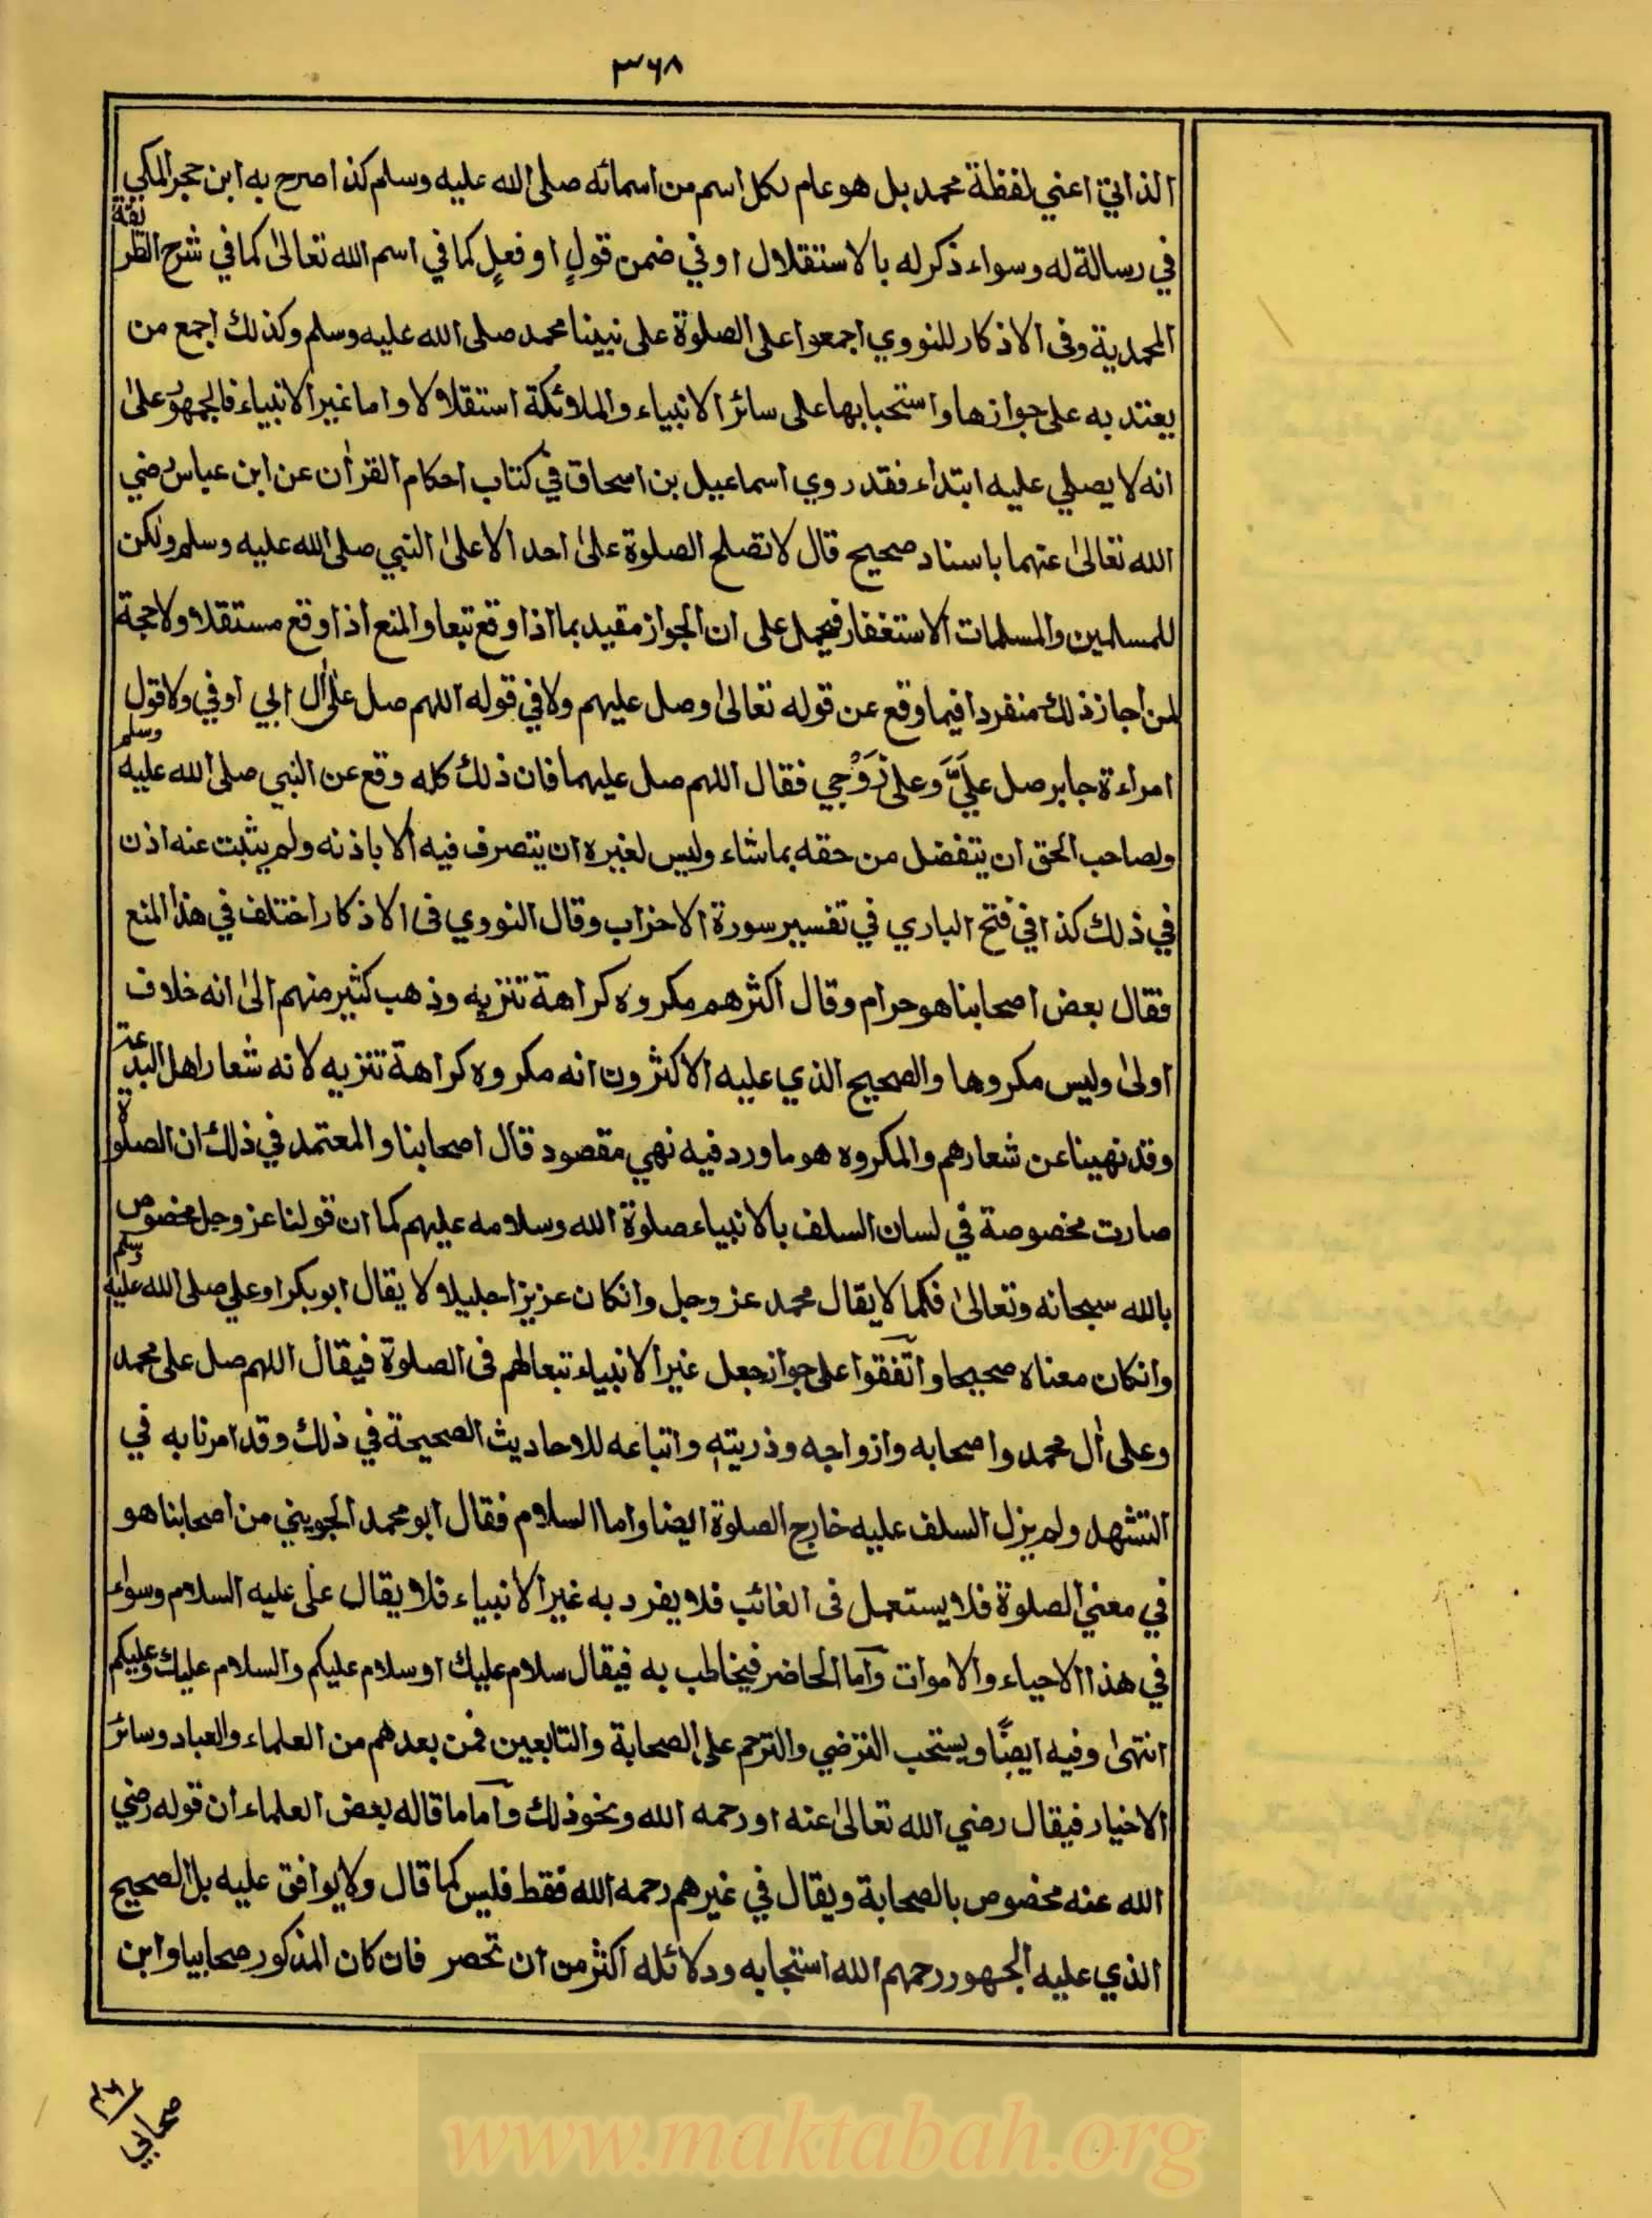 ۳۶۸
الذاتي اعني لفظة محمد بل هو عام لكل اسم من اسمائه صلى الله عليه وسلم كذا صرح به ابن حجر المكي
في رسالة له وسواء ذكر له بالاستقلال او في ضمن قولٍ او فعلٍ كما في اسم الله تعالىٰ كما في شرح الطريقة
المحمدية وفى الاذكار للنووي اجمعوا على الصلوة على نبينا محمد صلى الله عليه وسلم وكذلك اجمع من
يعتد به على جوازها واستحبابها على سائر الانبياء والملائكة استقلالا واما غير الانبياء فالجمهور علىٰ
انه لا يصلي عليه ابتداء فقد روي اسماعيل بن اسحاق في كتاب احكام القرأن عن ابن عباس رضي
الله تعالىٰ عنهما باسناد صحيح قال لا تصلح الصلوة علىٰ احد الا علىٰ النبي صلى الله عليه وسلم ولكن
للمسلمين والمسلمات الاستغفار فيحمل على ان الجواز مقيد بما اذا وقع تبعا والمنع اذا وقع مستقلا ولا حجة
لمن اجاز ذلك منفردا فيما وقع عن قوله تعالىٰ وصل عليهم ولا في قوله اللهم صل علىٰ أل ابي اوفي ولا قول
امراءة جابر صل عليَّ وعلى زَوْجي فقال اللهم صل عليهما فان ذلك كله وقع عن النبي صلى الله عليه وسلم
ولصاحب الحق ان يتفضل من حقه بما شاء وليس لغيره ان يتصرف فيه الا باذنه ولم يثبت عنه اذن
في ذلك كذا في فتح الباري في تفسير سورة الاحزاب وقال النووي فى الاذكار اختلف في هذا المنع
فقال بعض اصحابنا هو حرام وقال اكثرهم مكروه كراهة تنزيه وذهب كثير منهم الىٰ انه خلاف
اولىٰ وليس مكروها والصحيح الذي عليه الاكثرون انه مكروه كراهة تنزيه لانه شعار اهل البدعة
وقد نهينا عن شعارهم والمكروه هو ما ورد فيه نهي مقصود قال اصحابنا والمعتمد في ذلك ان الصلوة
صارت مخصوصة في لسان السلف بالانبياء صلوة الله وسلامه عليهم كما ان قولنا عز وجل مخصوص
بالله سبحانه وتعالىٰ فكما لا يقال محمد عز وجل وانكان عزيزا جليلا لا يقال ابو بكر او علي صلى الله عليه وسلم
وانكان معناه صحيحا واتفقوا على جواز جعل غير الانبياء تبعا لهم فى الصلوة فيقال اللهم صل على محمد
وعلى أل محمد واصحابه وازواجه وذريته واتباعه للاحاديث الصحيحة في ذلك وقد امرنا به في
التشهد ولم يزل السلف عليه خارج الصلوة ايضا واما السلام فقال ابو محمد الجويني من اصحابنا هو
في معني الصلوة فلا يستعمل فى الغائب فلا يفرد به غير الانبياء فلا يقال على عليه السلام وسواء
في هذا الاحياء والاموات واما الحاضر فيخاطب به فيقال سلام عليك او سلام عليكم والسلام عليك وعليكم
انتهىٰ وفيه ايضًا ويستحب الترضي والترحم على الصحابة والتابعين فمن بعدهم من العلماء والعباد وسائر
الاخيار فيقال رضي الله تعالىٰ عنه او رحمه الله ونحو ذلك واما ما قاله بعض العلماء ان قوله رضي
الله عنه مخصوص بالصحابة ويقال في غيرهم رحمه الله فقط فليس كما قال ولا يوافق عليه بل الصحيح
الذي عليه الجمهور رحمهم الله استحبابه ودلائله اكثر من ان تحصر فان كان المذكور صحابيا وابن
صحابي
www.maktabah.org